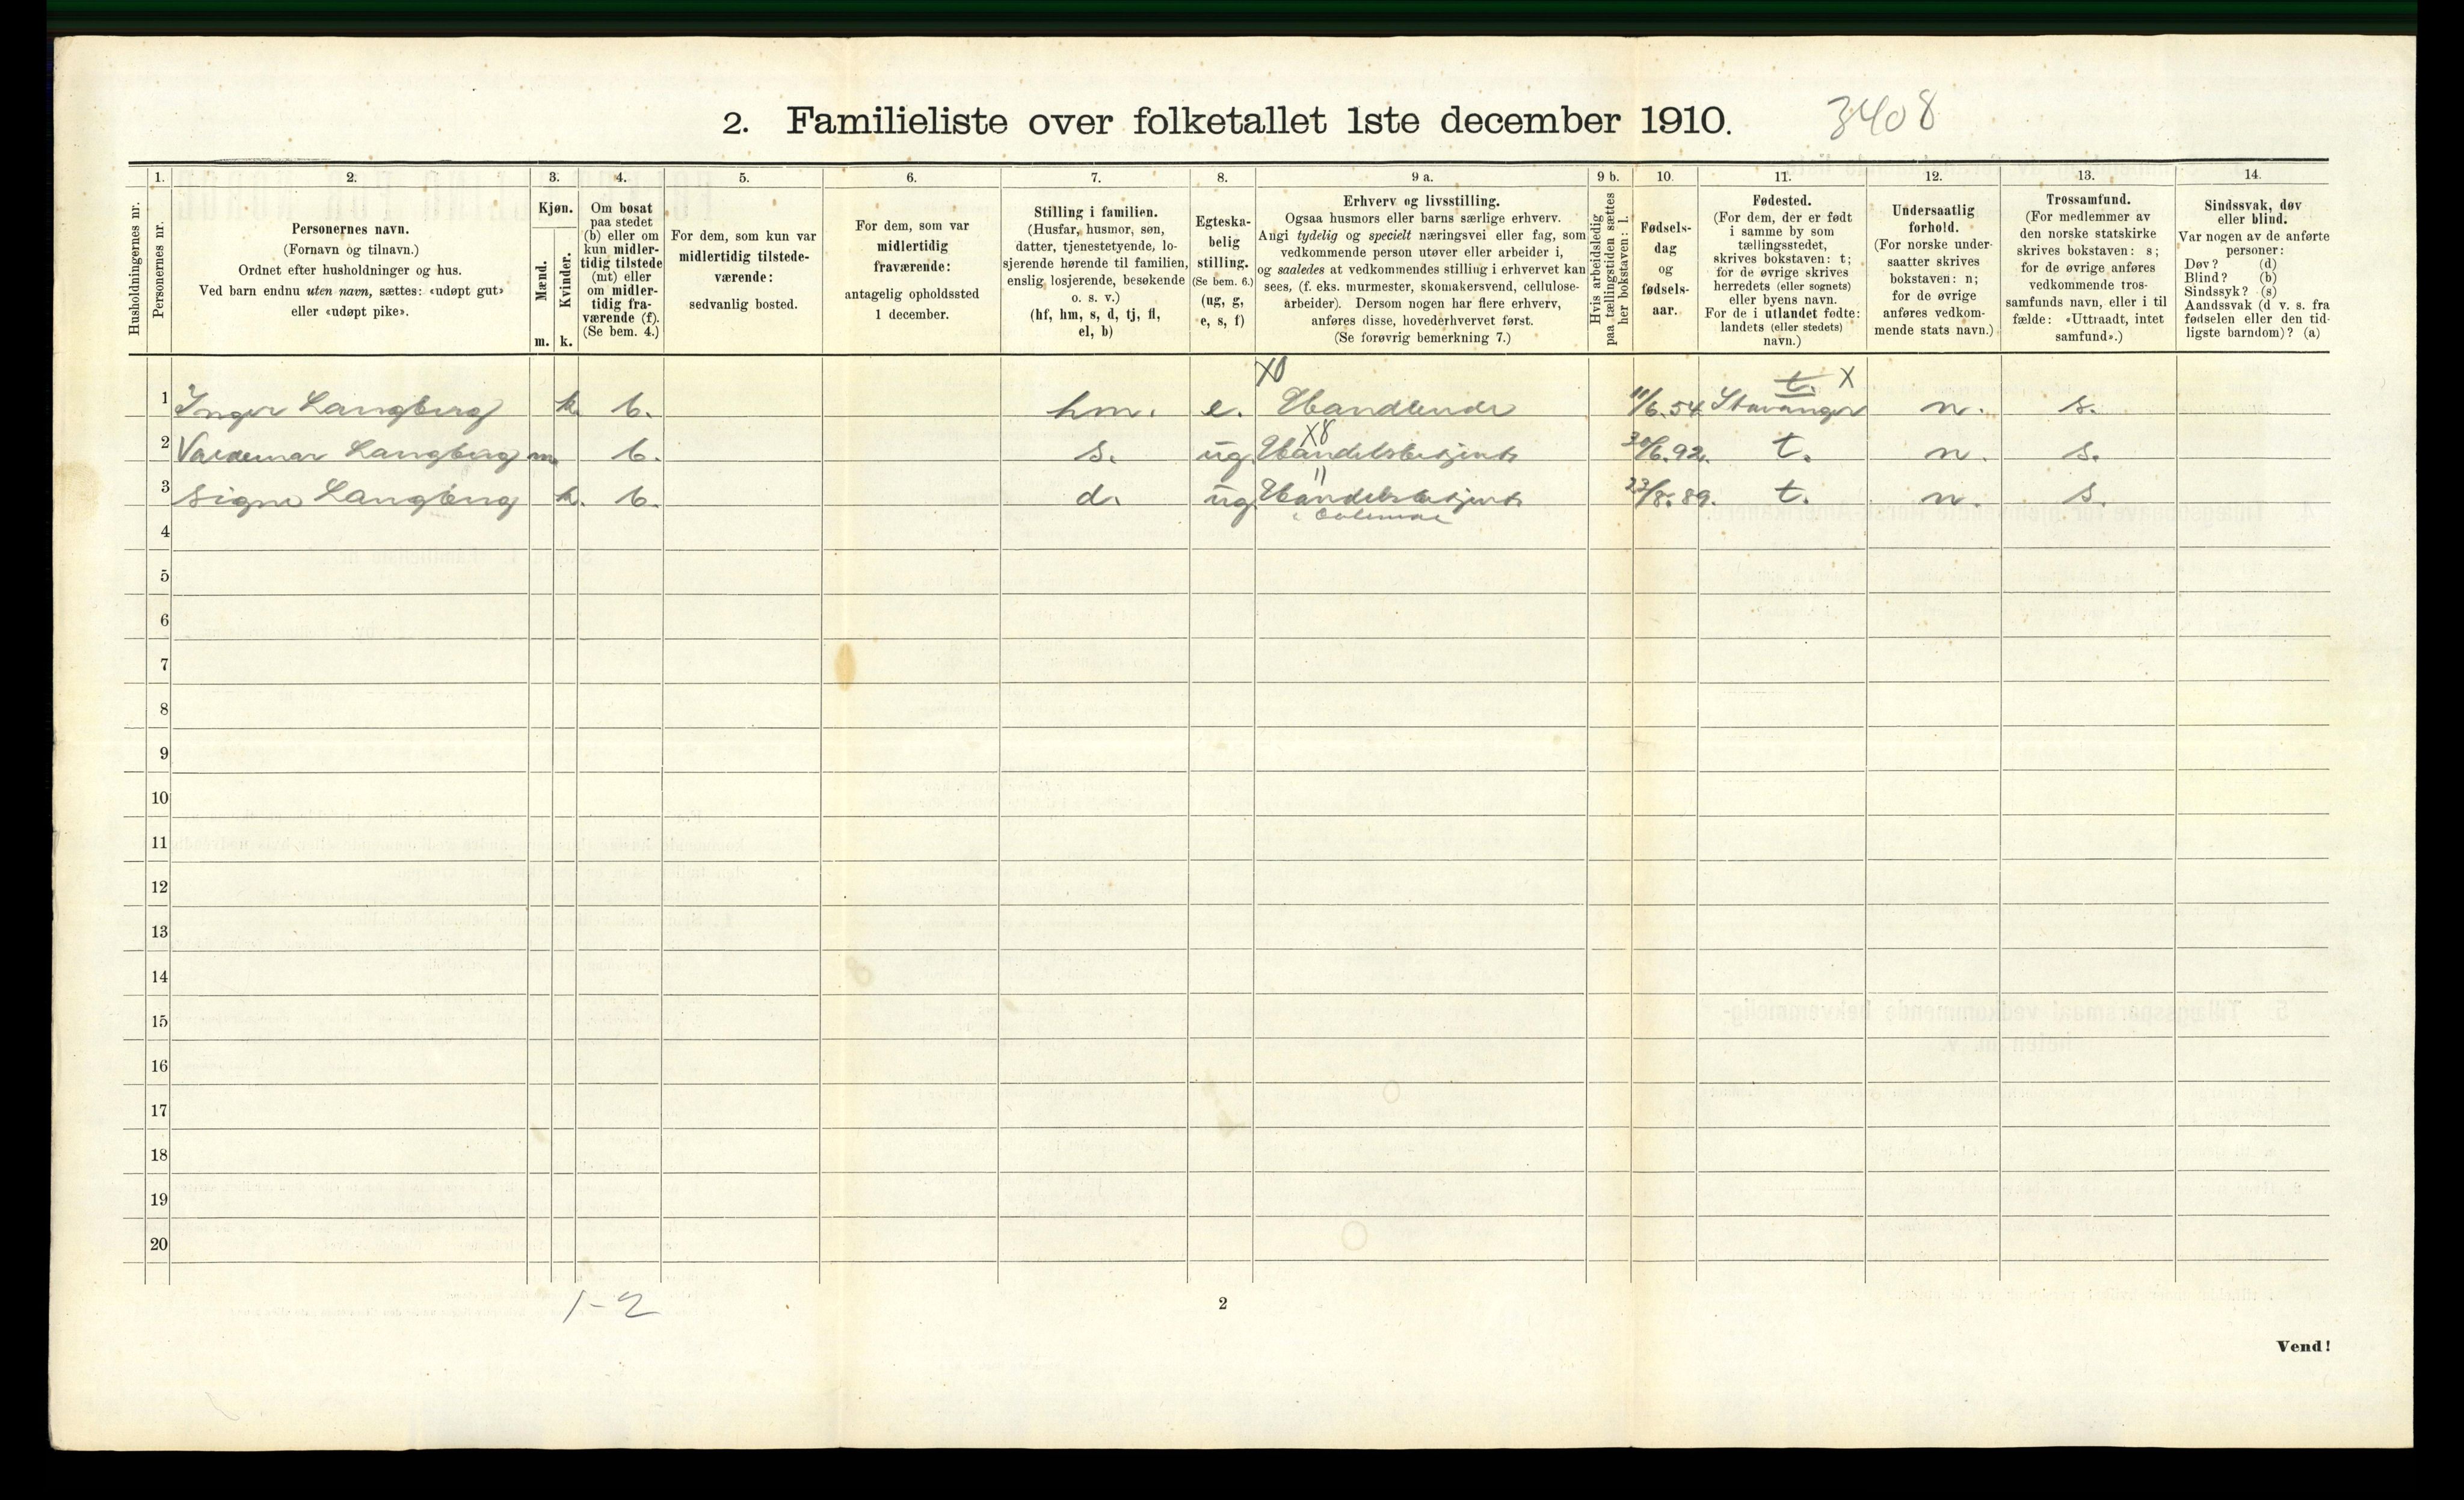 2. Familieliste over folketallet 1ste december 1910. 3408
Husholdningernes nr.
Personernes nr.
1.
2.
Personernes navn.
(Fornavn og tilnavn.)
Ordnet efter husholdninger og hus.
Ved barn endnu uten navn, sættes: «udøpt gut»
eller «udøpt pike».
3.
Kjøn.
Mænd.
Kvinder.
m. k.
4.
Om bosat
paa stedet
(b) eller om
kun midler-
tidig tilstede
(mt) eller
om midler-
tidig fra-
værende (f).
(Se bem. 4.)
5.
For dem, som kun var
midlertidig tilstede-
værende:
sedvanlig bosted.
6.
For dem, som var
midlertidig
fraværende:
antagelig opholdssted
1 december.
7.
Stilling i familien.
(Husfar, husmor, søn,
datter, tjenestetyende, lo-
sjerende hørende til familien,
enslig losjerende, besøkende
o. s. v.)
(hf, hm, s, d, tj, fl,
el, b)
8.
Egteska-
belig
stilling.
(Se bem. 6.)
(ug, g,
e, s, f)
9 a.
Erhverv og livsstilling.
Ogsaa husmors eller barns særlige erhverv.
Angi tydelig og specielt næringsvei eller fag, som
vedkommende person utøver eller arbeider i,
og saaledes at vedkommendes stilling i erhvervet kan
sees, (f. eks. murmester, skomakersvend, cellulose-
arbeider). Dersom nogen har flere erhverv,
anføres disse, hovederhvervet først.
(Se forøvrig bemerkning 7.)
9 b.
Hvis arbeidsledig
paa tællingstiden sættes
her bokstaven: l.
10.
Fødsels-
dag
og
fødsels-
aar.
11.
Fødested.
(For dem, der er født
i samme by som
tællingsstedet,
skrives bokstaven: t;
for de øvrige skrives
herredets (eller sognets)
eller byens navn.
For de i utlandet fødte:
landets (eller stedets)
navn.)
12.
Undersaatlig
forhold.
(For norske under-
saatter skrives
bokstaven: n;
for de øvrige
anføres vedkom-
mende stats navn.)
13.
Trossamfund.
(For medlemmer av
den norske statskirke
skrives bokstaven: s;
for de øvrige anføres
vedkommende tros-
samfunds navn, eller i til-
fælde: «Uttraadt, intet
samfund».)
14.
Sindssvak, døv
eller blind.
Var nogen av de anførte
personer:
Døv? (d)
Blind? (b)
Sindssyk? (s)
Aandssvak (d v. s. fra
fødselen eller den tid-
ligste barndom)? (a)
X0 t. X
1 Inger Langberg k. b. hm. e. Handlende 11/6.54 Stavanger n. s.
X8
2 Valdemar Langberg m. b. s. ug. Handelsbetjent 30/6.92. t. n. s.
"
3 Signe Langberg k. b. d. ug. Handelsbetjent 23/8.89. t. n s.
4
5
6
7
8
9
10
11
12
13
14
15
16
17
18
19
20
1-2
2
Vend!